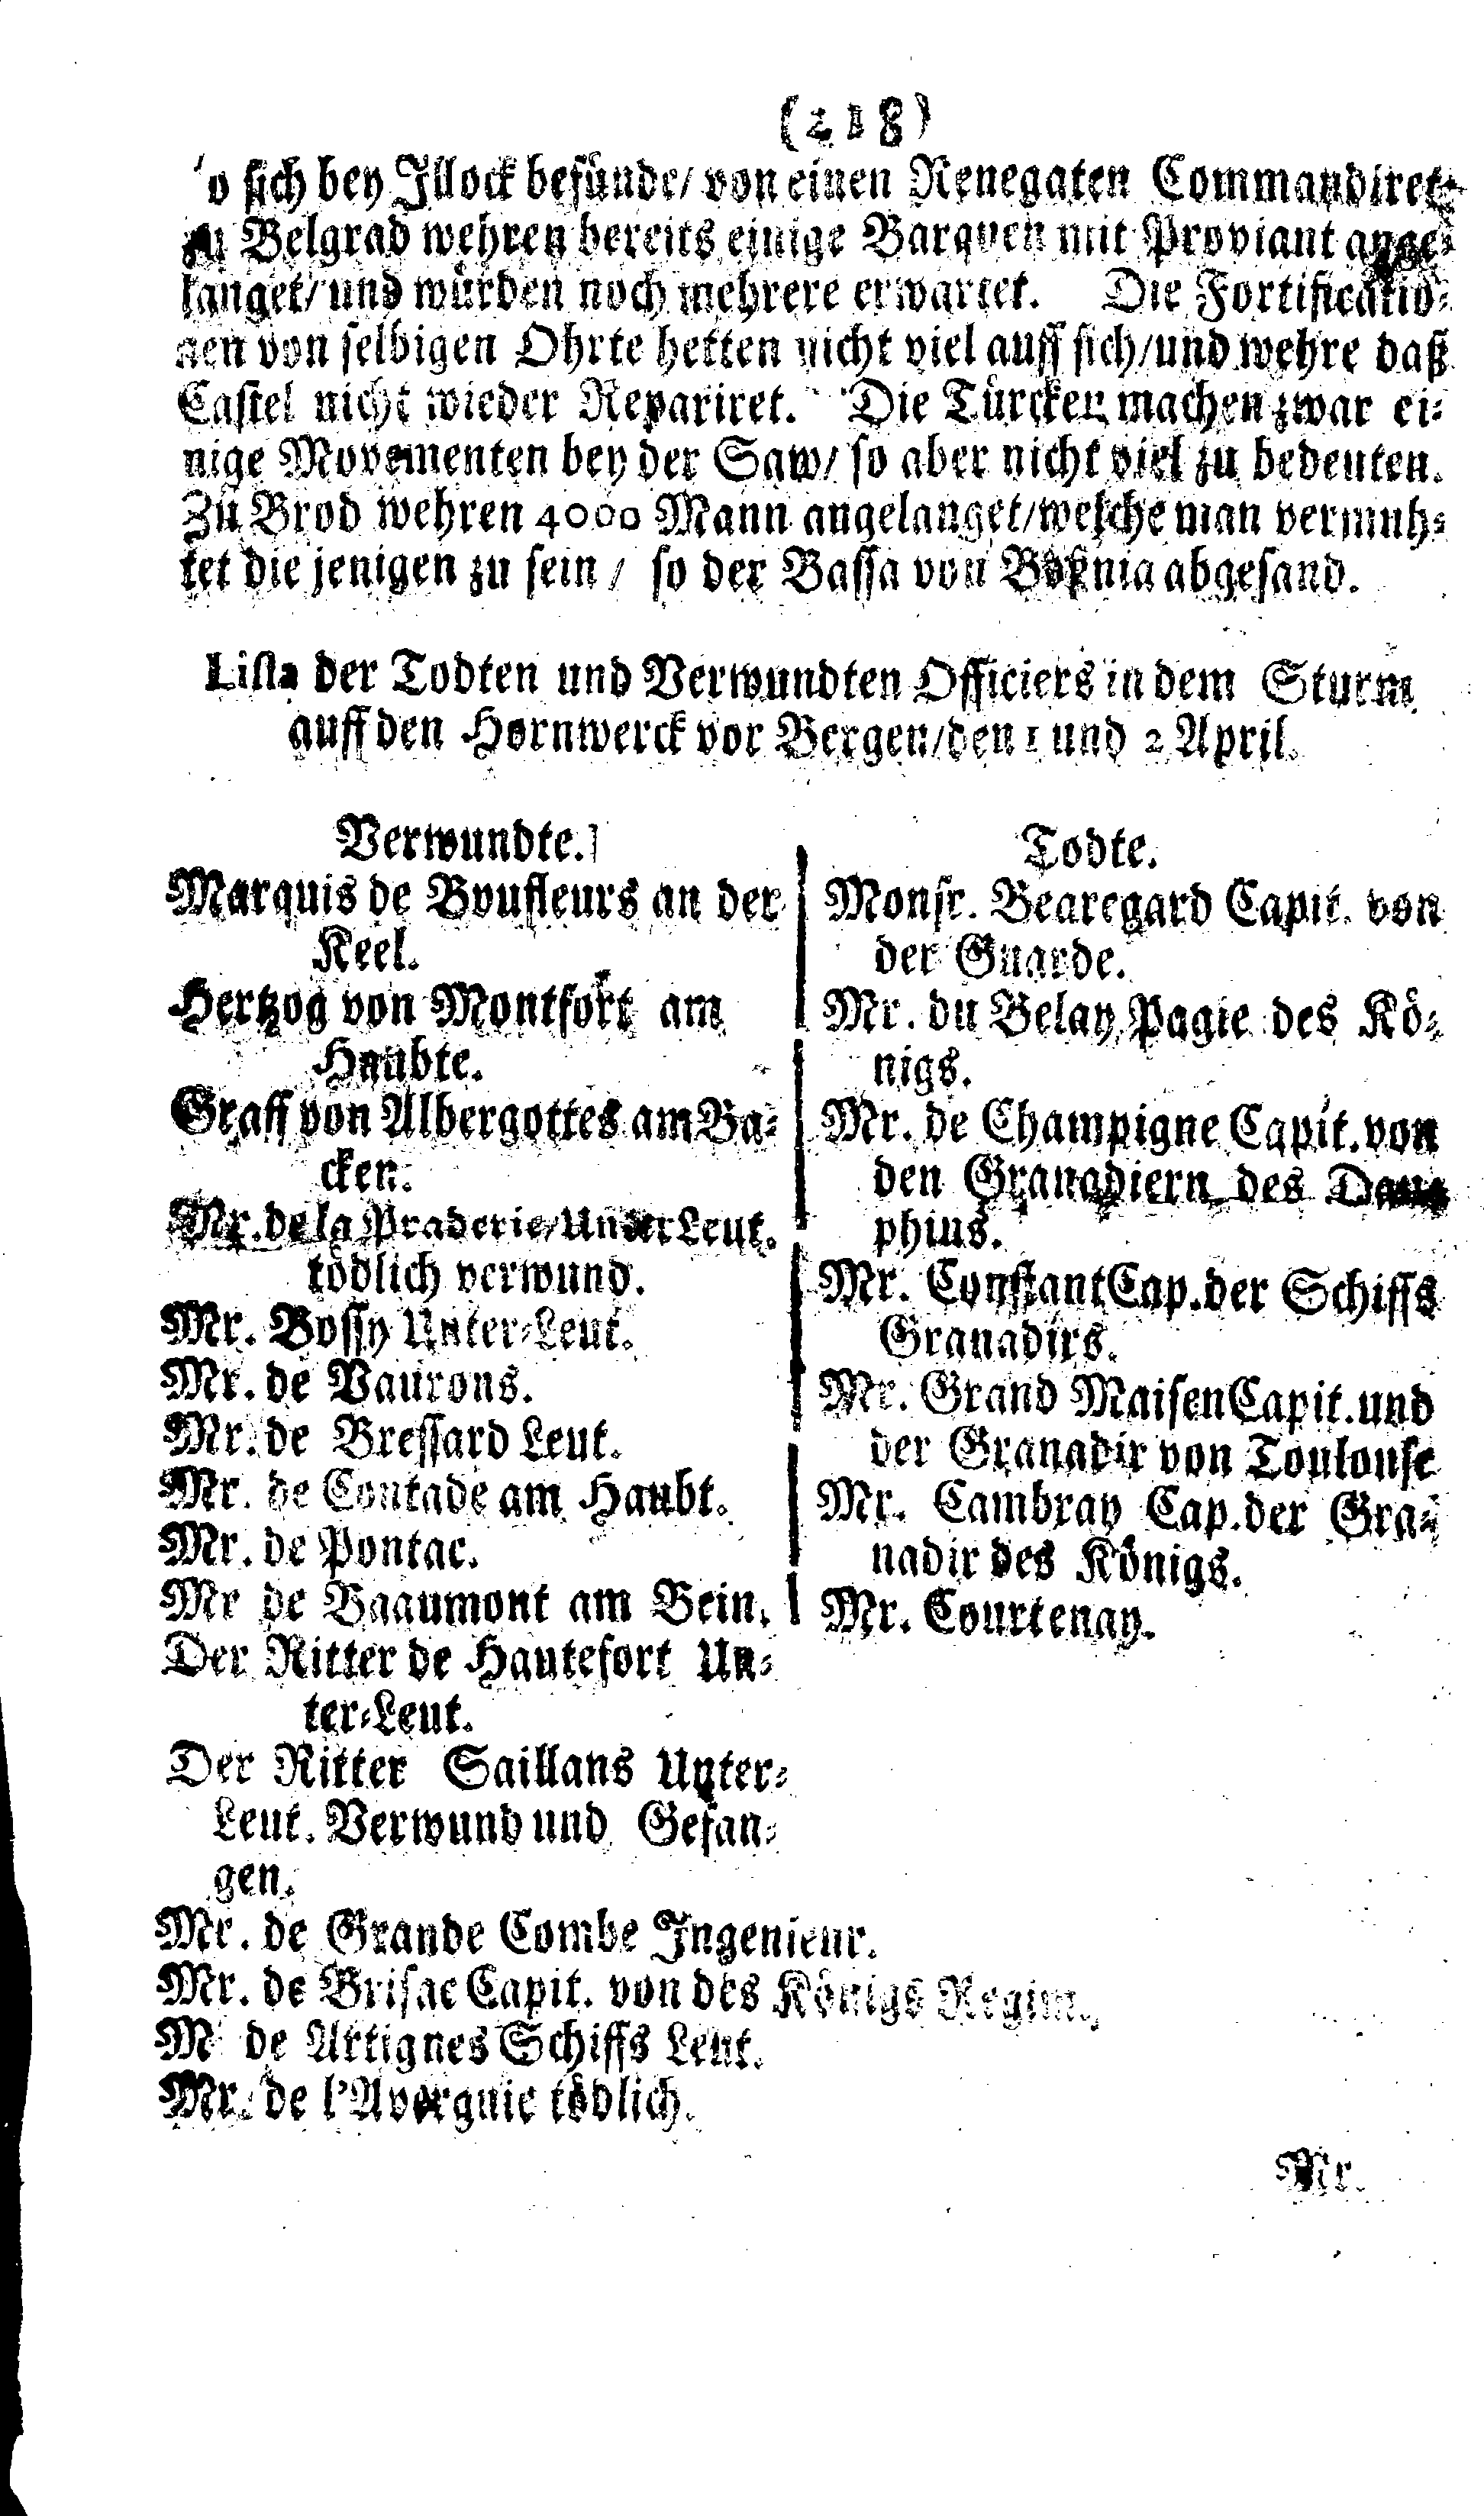 (218)
so sich bey Illock befünde/ von einen Renegaten Commandiret.
zu Belgrad wehren bereits einige Barqven mit Proviant ange-
langet/ und würden noch mehrere erwartet. Die Fortificatio-
nen von selbigen Ohrte hetten nicht viel auff sich/ und wehre daß
Castel nicht wieder Repariret. Die Türcken machen zwar ei-
nige Movementen bey der Saw/ so aber nicht viel zu bedeuten.
Zu Brod wehren 4000 Mann angelanget/ welche man vermuh-
tet die jenigen zu sein / so der Bassa von Boßnia abgesand.
Lista der Todten und Verwundten Officiers in dem Sturm
auff den Hornwerck vor Bergen/ den 1 und 2 April.
Verwundte.
Marquis de Boufleurs an der
Keel.
Hertzog von Montfort am
Haubte.
Graff von Albergottes am Ba-
cken.
Mr. de la Praderie/ Under Leut.
tödlich verwund.
Mr. Bossy Unter-Leut.
Mr. de Vaurons.
Mr. de Bressard Leut.
Mr. de Contade am Haubt.
Mr. de Pontac.
Mr de Baaumont am Bein.
Der Ritter de Hautefort Un-
ter-Leut.
Der Ritter Saillans Unter-
Leut. Verwund und Gefan-
gen.
Mr. de Grande Combe Ingenieur.
Mr. de Brisac Capit. von des Königs Regim.
M de Artignes Schiffs Leut.
Mr. de l'Avergnie tödlich.
Todte.
Monsr. Bearegard Capit. von
der Guarde.
Mr. du Belay, Pagie des Kö-
nigs.
Mr. de Champigne Capit. von
den Granadiern des Dau-
phius.
Mr. Constant Cap. der Schiffs
Granadirs.
Mr. Grand Maisen Capit. und
der Granadir von Toulouse
Mr. Cambray Cap. der Gra-
nadir des Königs.
Mr. Courtenay.
Mr.